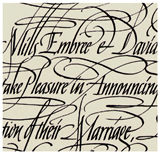 Mills Embree & David
ake Pleasure in Announcin
tion of their Marriage,